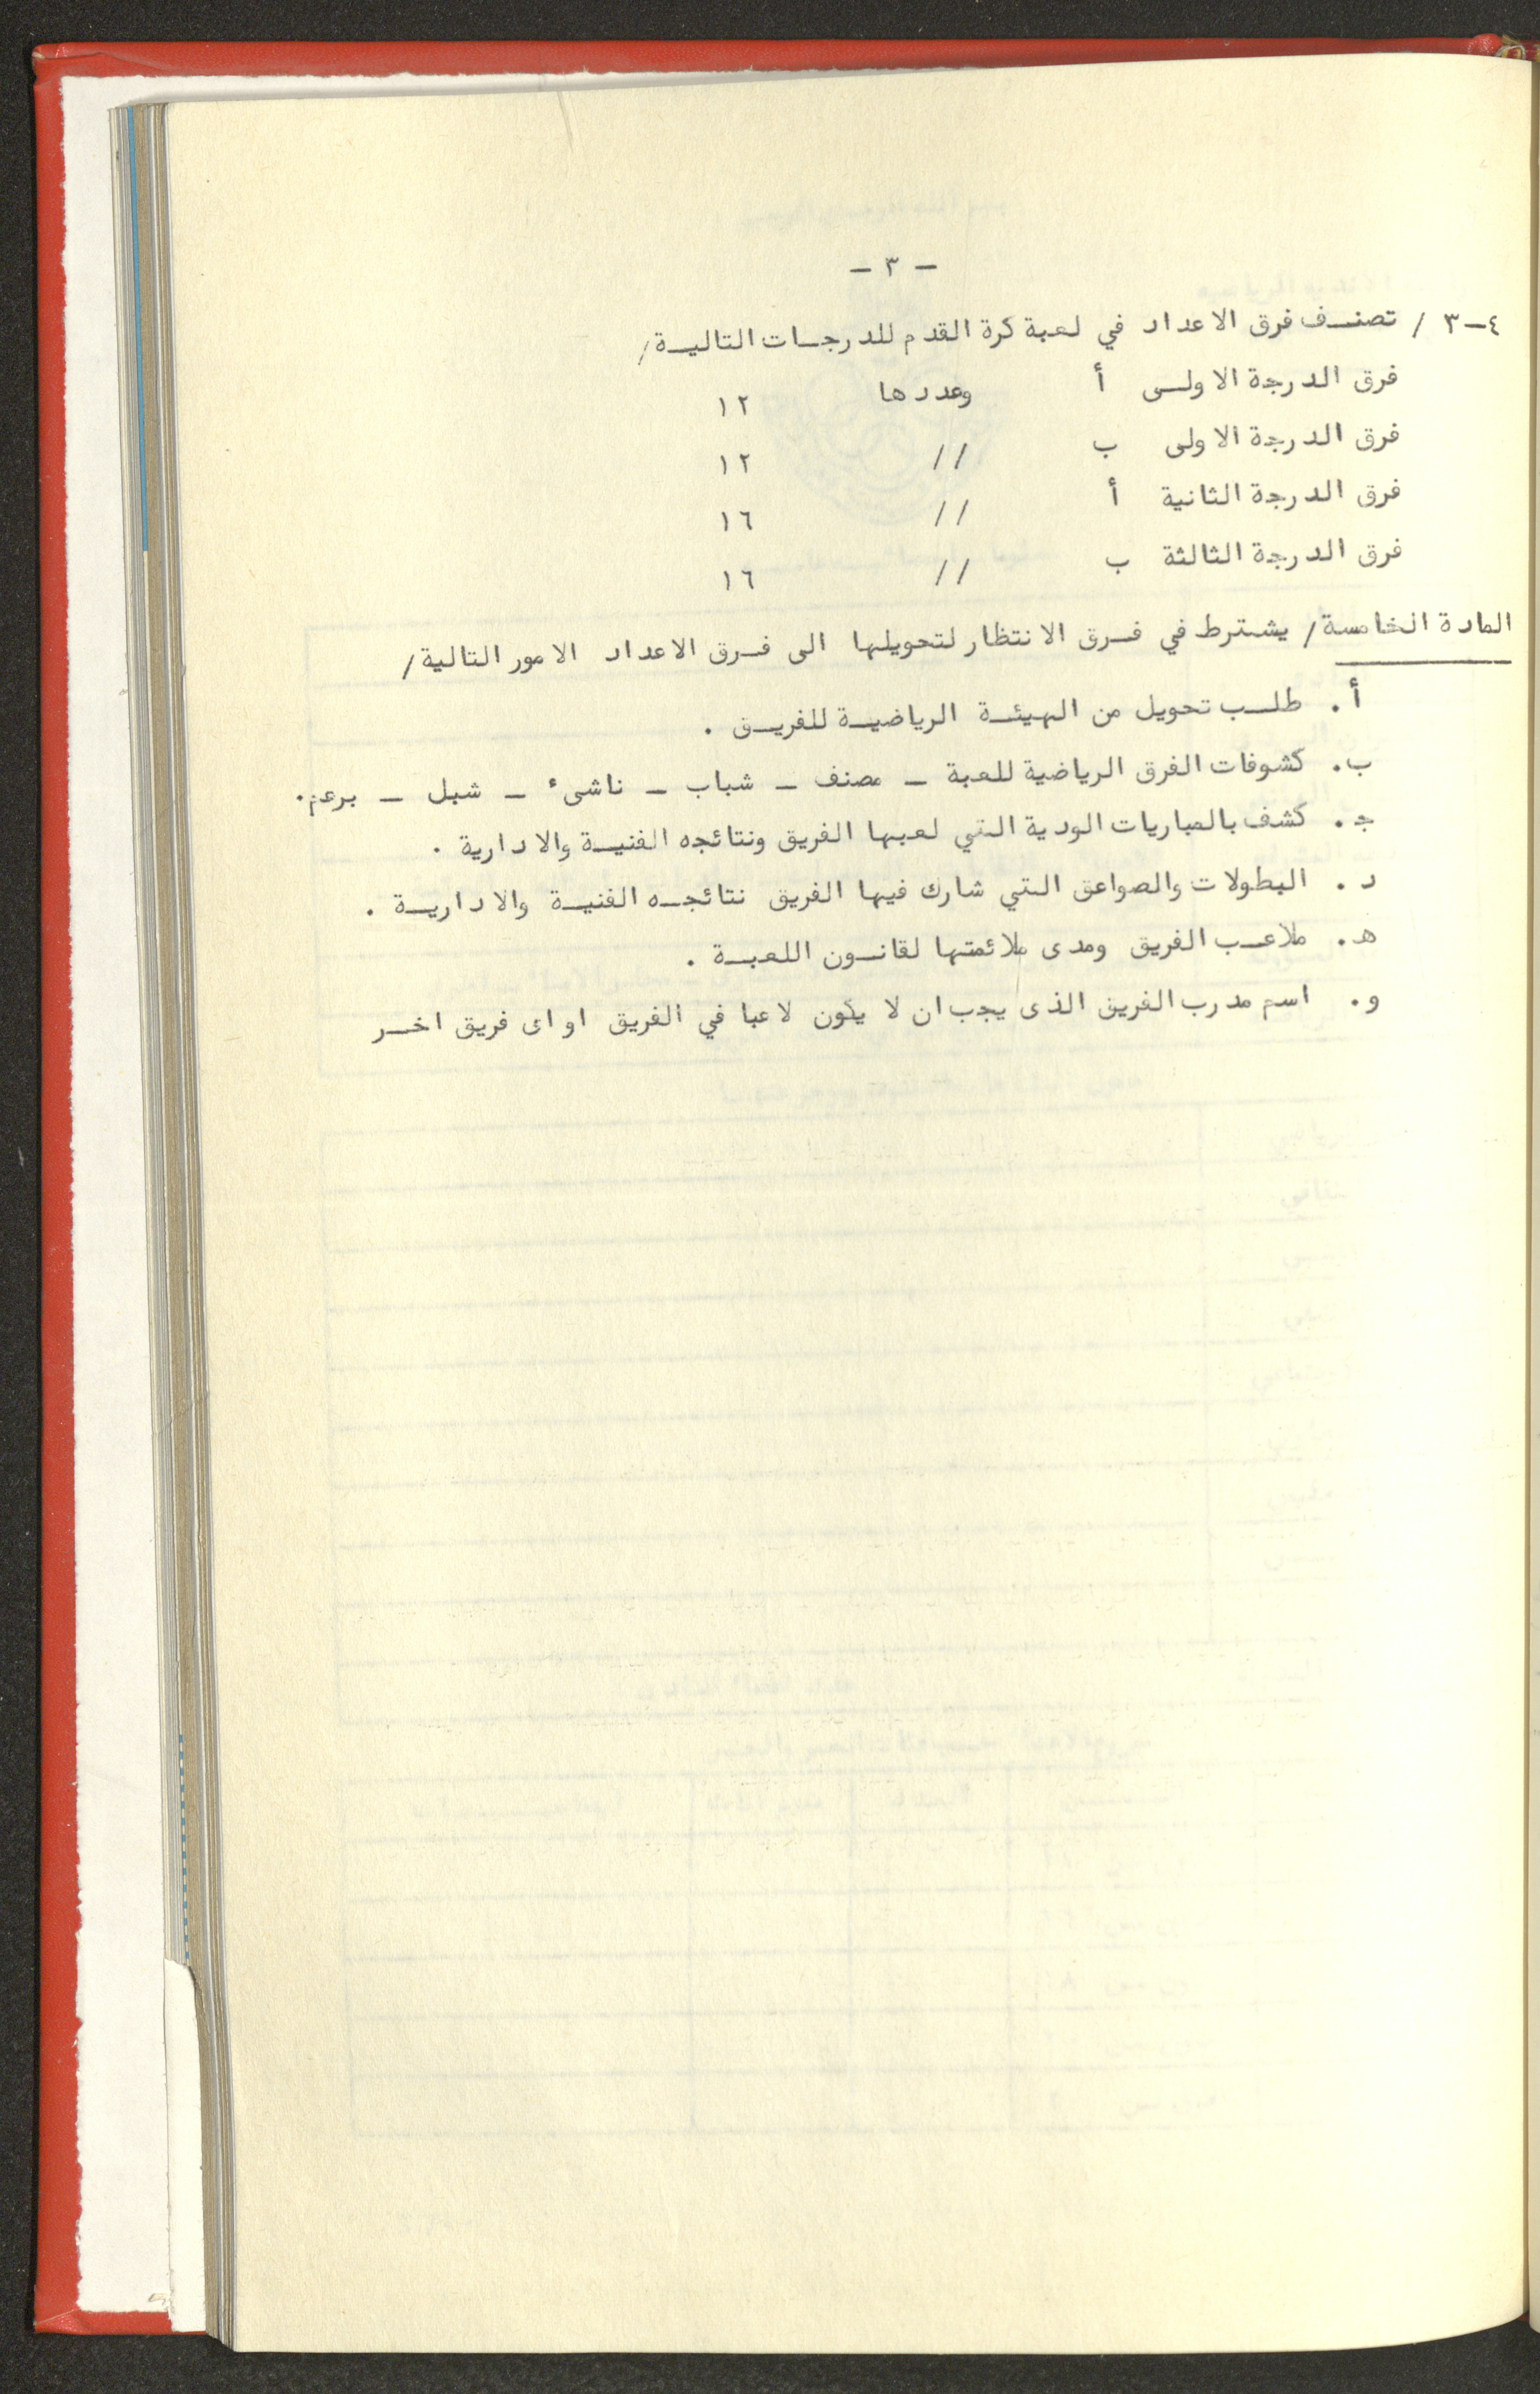 - ٣ -
٤-٣ / تصنف فرق الاعداد في لعبة كرة القدم للدرجات التالية/
فرق الدرجة الاولى أ وعددها ١٢
فرق الدرجة الاولى ب // ١٢
فرق الدرجة الثانية أ // ١٦
فرق الدرجة الثالثة ب // ١٦
المادة الخامسة/ يشترط في فرق الانتظار لتحويلها الى فرق الاعداد الامور التالية/
أ. طلب تحويل من الهيئة الرياضية للفريق .
ب. كشوفات الفرق الرياضية للعبة - مصنف - شباب - ناشىء - شبل - برعم.
ج. كشف بالمباريات الودية التي لعبها الفريق ونتائجه الفنية والادارية .
د. البطولات والصواعق التي شارك فيها الفريق نتائجه الفنية والادارية .
هـ. ملاعب الفريق ومدى ملائمتها لقانون اللعبة .
و. اسم مدرب الفريق الذى يجب ان لا يكون لاعبا في الفريق او اى فريق اخر